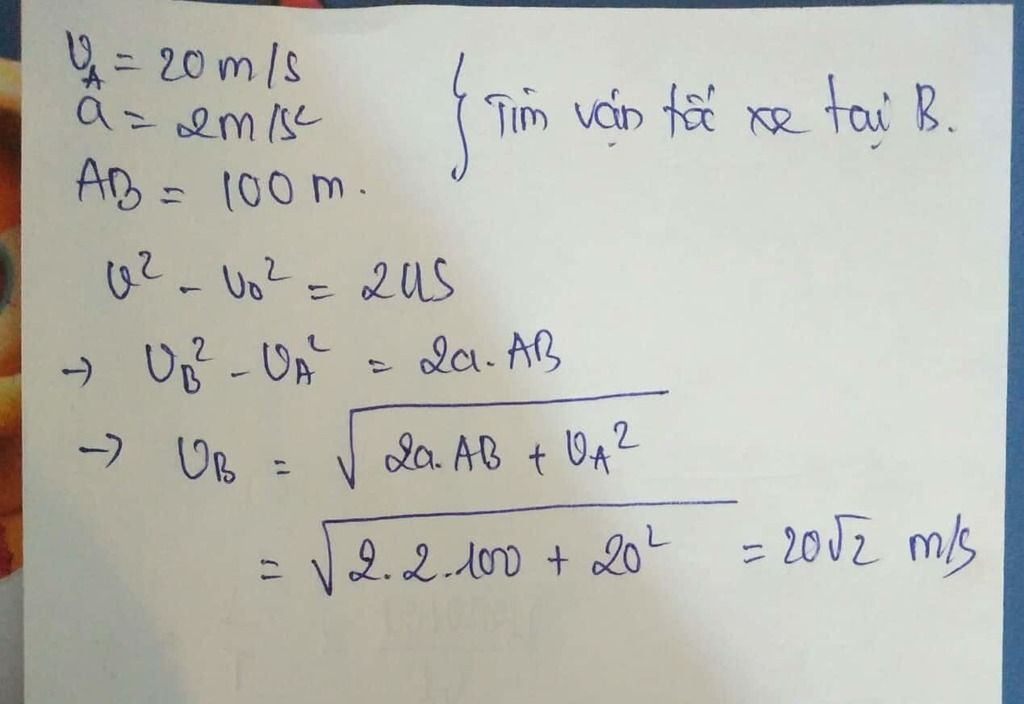 v_A = 20 m/s
a = 2m/s²
AB = 100 m.
} Tìm vận tốc xe tại B.
v² - v₀² = 2as
→ v_B² - v_A² = 2a.AB
→ v_B = √(2a.AB + v_A²)
= √(2.2.100 + 20²) = 20√2 m/s